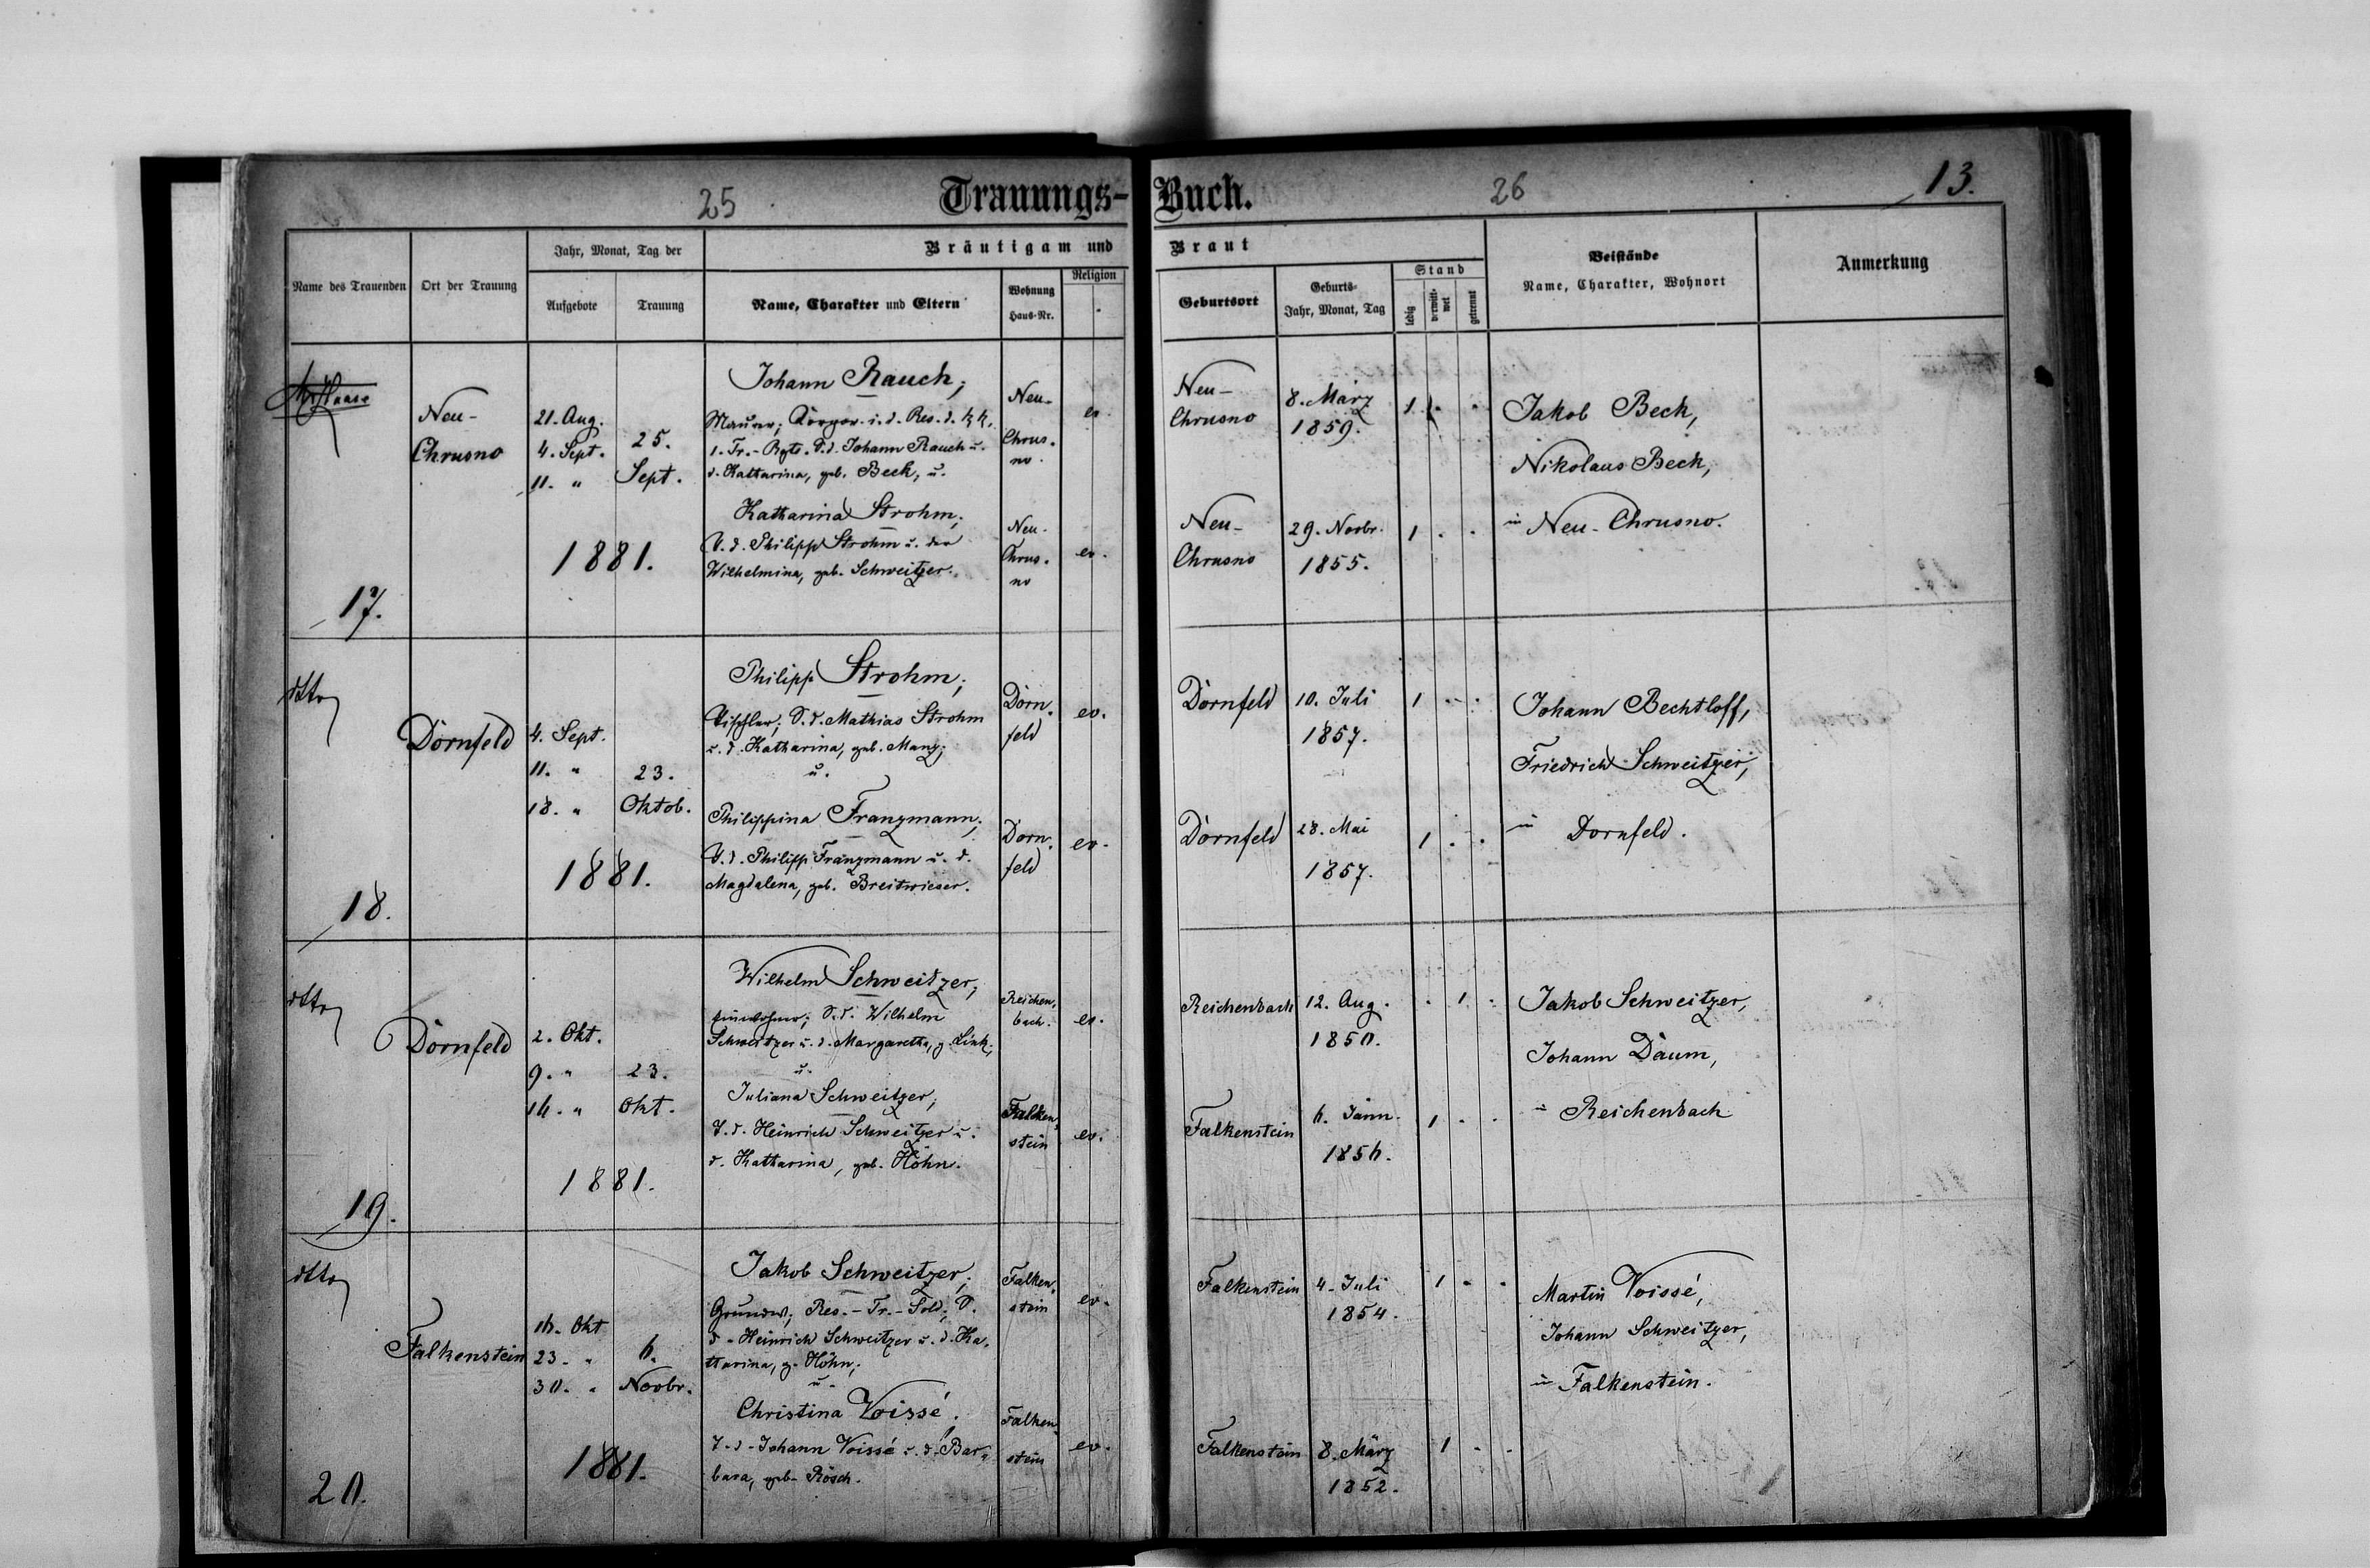 25
Trauungs-Buch.
26
13.
Name des Trauenden
Ort der Trauung
Jahr, Monat, Tag der
Aufgebote
Trauung
Bräutigam und Braut
Name, Charakter und Eltern
Wohnung
Haus-Nr.
Religion
Geburtsort
Geburts-
Jahr, Monat, Tag
Stand
ledig
verwitt-
wet
getrennt
Beistände
Name, Charakter, Wohnort
Anmerkung
17.
Neu-
Chrusno
21. Aug.
4. Sept.
11. "
25.
Sept.
1881.
Johann Rauch;
Maurer; i. d. Res. d. k. k.
1. Tr.-Rgts. S. d. Johann Rauch u.
d. Katharina, geb. Beck, u.
Neu-
Chrus-
no.
ev.
Neu-
Chrusno
8. März
1859.
1 . .
Katharina Strohm;
T. d. Philipp Strohm u. der
Wilhelmina, geb. Schweitzer.
Neu-
Chrus-
no
ev.
Neu-
Chrusno
29. Novbr.
1855.
1 . .
Jakob Beck,
Nikolaus Beck,
in Neu-Chrusno.
dtto
18.
Dornfeld
4. Sept.
11. "
18. "
23.
Oktob.
1881.
Philipp Strohm;
Tischler; S. d. Mathias Strohm
u. d. Katharina, geb. Manz;
u.
Dorn-
feld
ev.
Dornfeld
10. Juli
1857.
1 . .
Philippina Franzmann;
T. d. Philipp Franzmann u. d.
Magdalena, geb. Breitwieser.
Dorn-
feld
ev.
Dornfeld
28. Mai
1857.
1 . .
Johann Bechtloff,
Friedrich Schweitzer,
in Dornfeld.
dtto
19.
Dornfeld
2. Okt.
9. "
16. "
23.
Okt.
1881.
Wilhelm Schweitzer;
Einwohner; S. d. Wilhelm
Schweitzer u. d. Margaretha, g. Link;
u.
Reichen-
bach.
ev.
Reichenbach
12. Aug.
1850.
. 1 .
Juliana Schweitzer;
T. d. Heinrich Schweitzer u.
d. Katharina, geb. Höhn.
Falken-
stein
ev.
Falkenstein
6. Jänn.
1856.
1 . .
Jakob Schweitzer,
Johann Daum,
in Reichenbach
dtto
20.
Falkenstein
16. Okt
23. "
30. "
6.
Novbr.
1881.
Jakob Schweitzer;
Grundw; Res.-Tr.-Sold; S.
d. Heinrich Schweitzer u. d. Ka-
tharina, g. Höhn;
u.
Falken-
stein
ev.
Falkenstein
4. Juli
1854.
1 . .
Christina Voissé.
T. d. Johann Voissé u. d. Bar-
bara, geb. Rösch.
Falken-
stein
ev.
Falkenstein
8. März
1852.
1 . .
Martin Voissé,
Johann Schweitzer,
in Falkenstein.